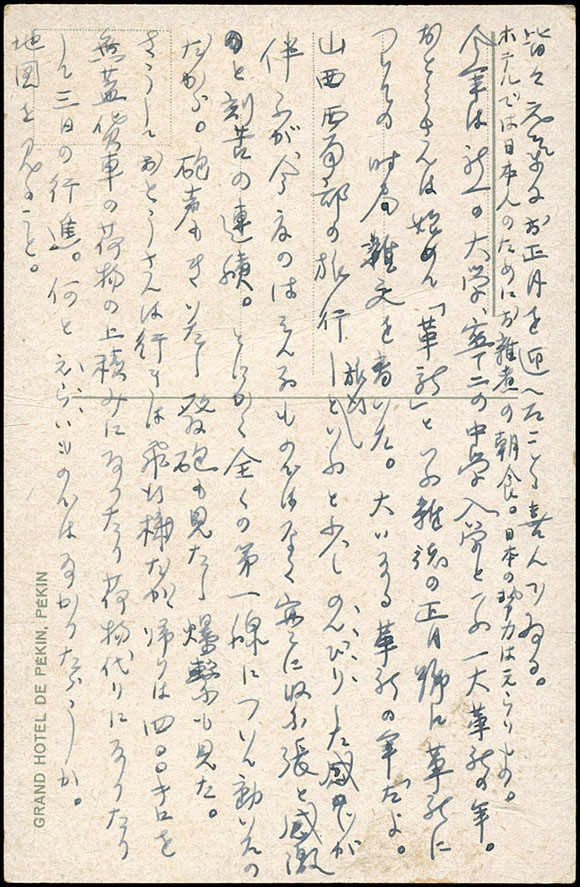 皆々元気にお正月を迎へたことと喜んでゐる。
ホテルでは日本人のためにお雑煮の朝食。日本の勢力はえらいもの。
今年は 一の大学、二の中学入学と 一大革新の年。
おとうさんは始めて「革新」といふ雑誌の正月號に革新に
ついての時局雑文を書いた。大いなる革新の年だよ。
山西西南部の旅行――旅行といふと少しのんびりした感じが
伴ふが、今度のはそんなものではなく実に緊張と感激
と刻苦の連続。とにかく全くの第一線について動いたの
だから。砲声もきいたし 発砲も見たし 爆撃も見た。
さうして おとうさんは行きは飛行機だが 帰りは四〇〇キロを
無蓋貨車の荷物の上積みになつたり 荷物代りになつたり
して三日の行進。何とえらいものではなからうか。
地図を見ること。
GRAND HOTEL DE PÉKIN, PÉKIN